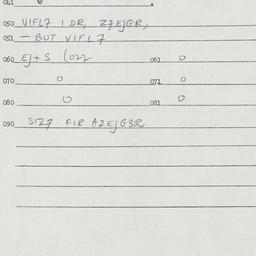 050 VIFL7 1 DR, Z7EJGR,
051 — BUT VIFL7
060 EJ+S 061 0
070 0 071 0
080 0 081 0
090 SIZ7 FIR AZEJG3R